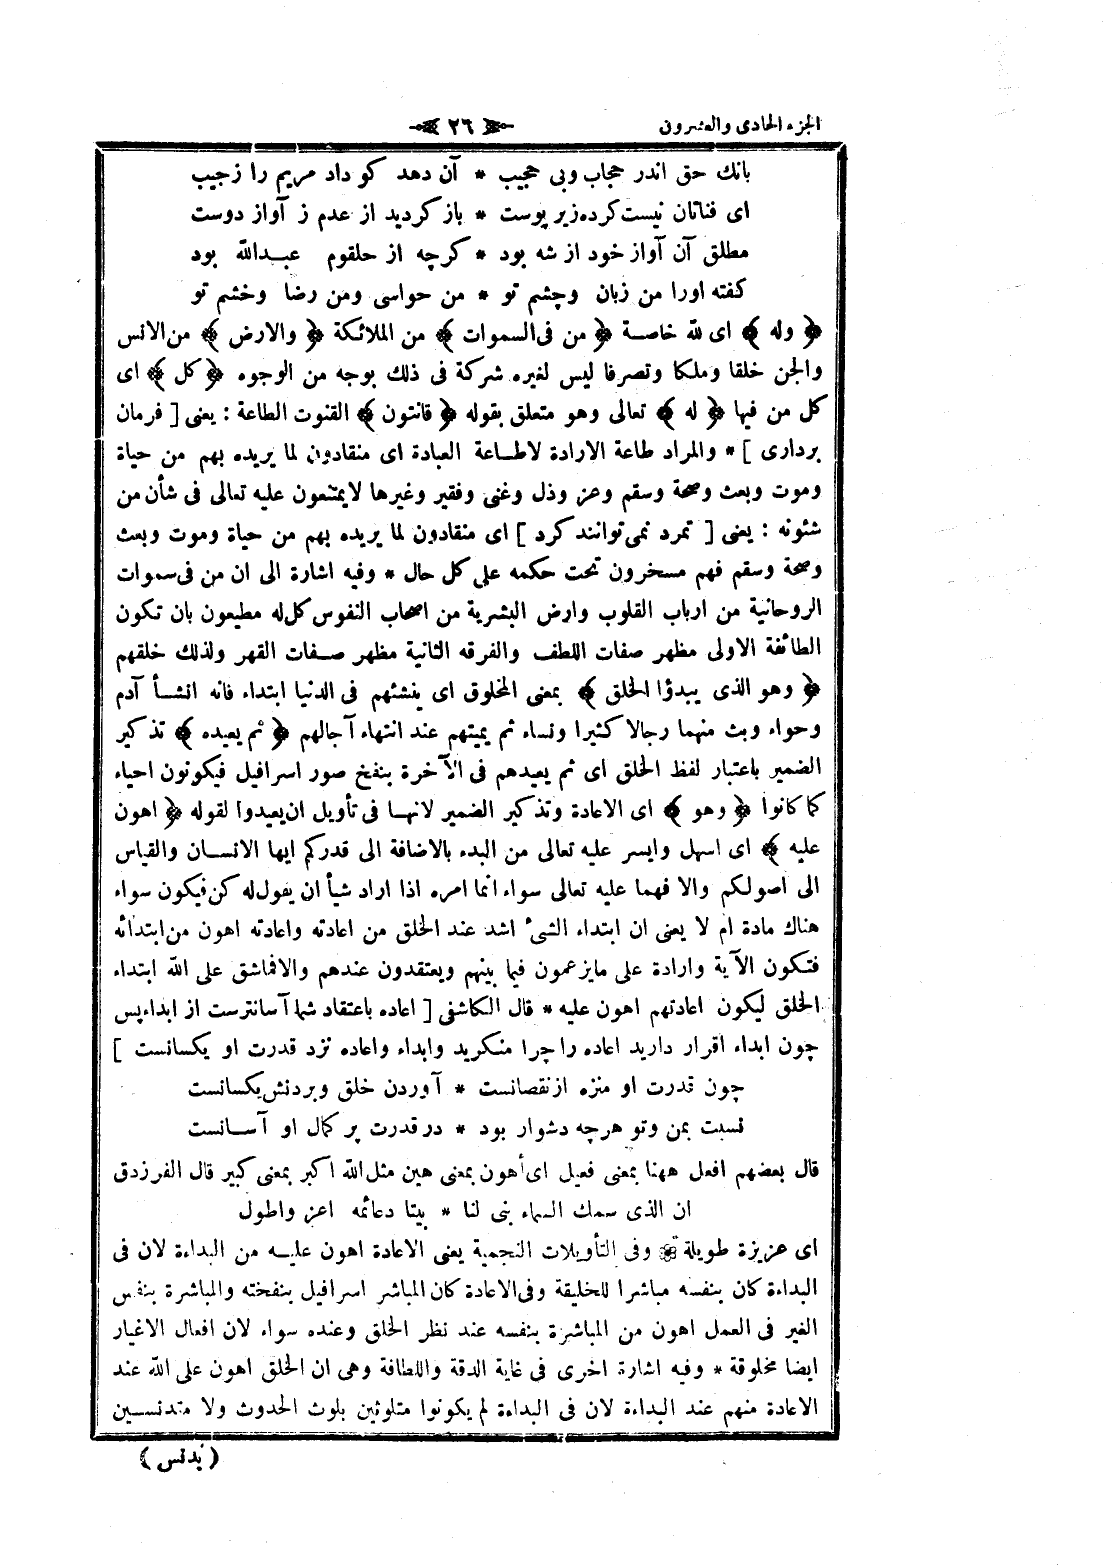 الجزء الحادى والعشرون
٢٦
بانك حق اندر حجاب وبى حجيب * آن دهد كو داد مريم را زجيب
اى فناتان نيست كرده زير پوست * باز كرديد از عدم ز آواز دوست
مطلق آن آواز خود از شه بود * كرچه از حلقوم عبدالله بود
كفته اورا من زبان وچشم تو * من حواسى ومن رضا وخشم تو
﴿ وله ﴾ اى لله خاصة ﴿ من فى السموات ﴾ من الملائكة ﴿ والارض ﴾ من الانس
والجن خلقا وملكا وتصرفا ليس لغيره شركة فى ذلك بوجه من الوجوه ﴿ كل ﴾ اى
كل من فيها ﴿ له ﴾ تعالى وهو متعلق بقوله ﴿ قانتون ﴾ القنوت الطاعة : يعنى [ فرمان
بردارى ] * والمراد طاعة الارادة لاطاعة العبادة اى منقادون لما يريده بهم من حياة
وموت وبعث وصحة وسقم وعز وذل وغنى وفقير وغيرها لايمتنعون عليه تعالى فى شأن من
شئونه : يعنى [ تمرد نمى توانند كرد ] اى منقادون لما يريده بهم من حياة وموت وبعث
وصحة وسقم فهم مسخرون تحت حكمه على كل حال * وفيه اشارة الى ان من فى سموات
الروحانية من ارباب القلوب وارض البشرية من اصحاب النفوس كل له مطيعون بان تكون
الطائفة الاولى مظهر صفات اللطف والفرقه الثانية مظهر صفات القهر ولذلك خلقهم
﴿ وهو الذى يبدؤا الخلق ﴾ بمعنى المخلوق اى ينشئهم فى الدنيا ابتداء فانه انشأ آدم
وحواء وبث منهما رجالا كثيرا ونساء ثم يميتهم عند انتهاء آجالهم ﴿ ثم يعيده ﴾ تذكير
الضمير باعتبار لفظ الخلق اى ثم يعيدهم فى الآخرة بنفخ صور اسرافيل فيكونون احياء
كما كانوا ﴿ وهو ﴾ اى الاعادة وتذكير الضمير لانها فى تأويل ان يعيدوا لقوله ﴿ اهون
عليه ﴾ اى اسهل وايسر عليه تعالى من البدء بالاضافة الى قدركم ايها الانسان والقياس
الى اصولكم والا فهما عليه تعالى سواء انما امره اذا اراد شيأ ان يقول له كن فيكون سواء
هناك مادة ام لا يعنى ان ابتداء الشئ اشد عند الخلق من اعادته واعادته اهون من ابتدائه
فتكون الآية وارادة على مايزعمون فيما بينهم ويعتقدون عندهم والافماشق على الله ابتداء
الخلق ليكون اعادتهم اهون عليه * قال الكاشفى [ اعاده باعتقاد شما آسانترست از ابداءپس
چون ابداء اقرار داريد اعاده را چرا منكريد وابداء واعاده نزد قدرت او يكسانست ]
چون قدرت او منزه از نقصانست * آوردن خلق وبردنش يكسانست
نسبت بمن وتو هرچه دشوار بود * در قدرت پر كمال او آسانست
قال بعضهم افعل ههنا بمعنى فعيل اى أهون بمعنى هين مثل الله اكبر بمعنى كبير قال الفرزدق
ان الذى سمك السماء بنى لنا * بيتا دعائمه اعز واطول
اى عزيزة طويلة * وفى التأويلات النجمية يعنى الاعادة اهون عليه من البداءة لان فى
البداءة كان بنفسه مباشرا للخليقة وفى الاعادة كان المباشر اسرافيل بنفخته والمباشرة بنفس
الغير فى العمل اهون من المباشرة بنفسه عند نظر الخلق وعنده سواء لان افعال الاغيار
ايضا مخلوقة * وفيه اشارة اخرى فى غاية الدقة واللطافة وهى ان الخلق اهون على الله عند
الاعادة منهم عند البداءة لان فى البداءة لم يكونوا متلوثين بلوث الحدوث ولا متدنسين
( بدنس )